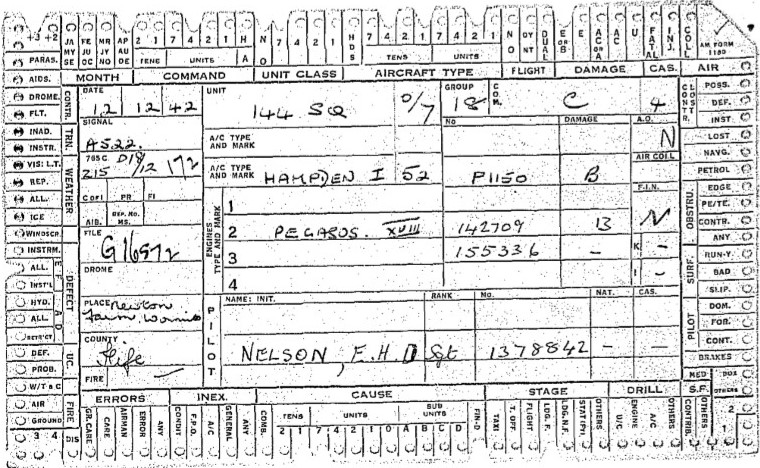 +3 +2 JA FE MR AP 2 1 2 1 H N 7 4 2 1 H 7 4 2 1 7 4 2 1 N DY DUAL E E AC AC U FATAL INJ. COLL
MY JU JY AU TENS UNITS A O D TENS UNITS O NT OR OR AM FORM
SE OC NO DE S B A 1180
PARAS. MONTH COMMAND UNIT CLASS AIRCRAFT TYPE FLIGHT DAMAGE CAS. AIR
AIDS. CONTR. DATE UNIT GROUP C O M. CLOST CONTR. POSS.
DROME. 12 12 42 144 SQ O/7 18 C 4 DEF.
FLT. SIGNAL No DAMAGE A.O. INST
INAD. TRN. A522. A/C TYPE AND MARK N LOST
INSTR. 765C D18/12 172 AIR COLL NAVG.
VIS: L.T. WEATHER 215 A/C TYPE AND MARK HAMPDEN I 52 P1150 B PETROL
REP. F.I.N. OBSTRU. EDGE
ALL. C OF I PR FI 1 PE/TE.
ICE AIB. REP. No. MS. ENGINES TYPE AND MARK 2 PEGASUS. XVIII 142709 13 N CONTR.
WINDSCR. FILE ANY
INSTRM. G16572 3 155336 - K - SURF. RUN-Y.
ALL. DEFECT DROME 4 I - BAD
INST'L SLIP.
HYD. PLACE Newton PILOT NAME: INIT. RANK No. NAT. CAS. PILOT DOM.
ALL. Farm, FOR.
COUNTY CONT.
DEF. UC. Fife NELSON, E.H.D Sgt 1378842 - - BRAKES
PROB. FIRE - MED DUX
W/T & C ERRORS INEX. CAUSE STAGE DRILL S.F. OTHERS
AIR FIRE GR. CARE CARE AIRMAN ERROR ANY CONDIT F.P.O. A/C GENERAL ANY COMB. TENS UNITS SUB UNITS FIN-D TAXI T. OFF. FLIGHT LDG. F. LDG. N.F. STAT(P) OTHERS U/C ENGINE A/C OTHERS CONTRIB. OTHERS 2
GROUND
3 4 DIS 2 1 7 4 2 1 0 A B C D 1